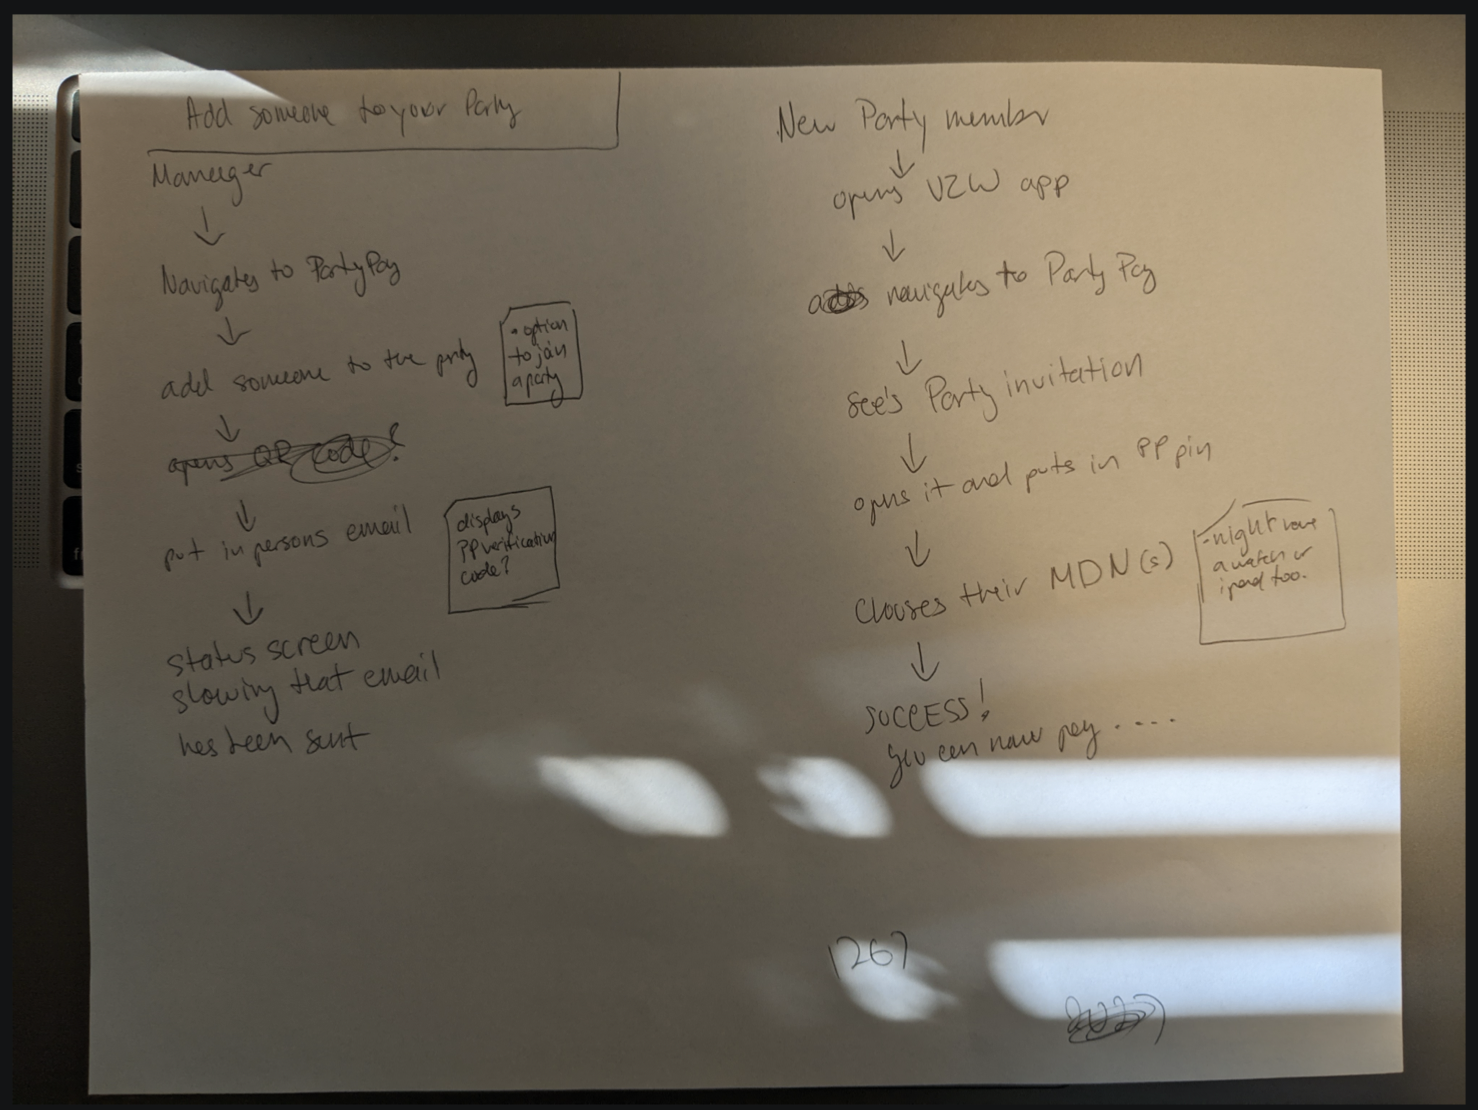 Add someone to your Party
Manager
Navigates to PartyPay
add someone to the party
• option
to join
a party
opens QR code?
put in persons email
displays
PP verification
code?
status screen
showing that email
hes been sent
New Party member
opens VZW app
navigates to Party Pay
see's Party invitation
opens it and puts in PP pin
Chooses their MDN(s)
-might have
a watch or
ipad too.
SUCCESS!
you can now pay ....
1267